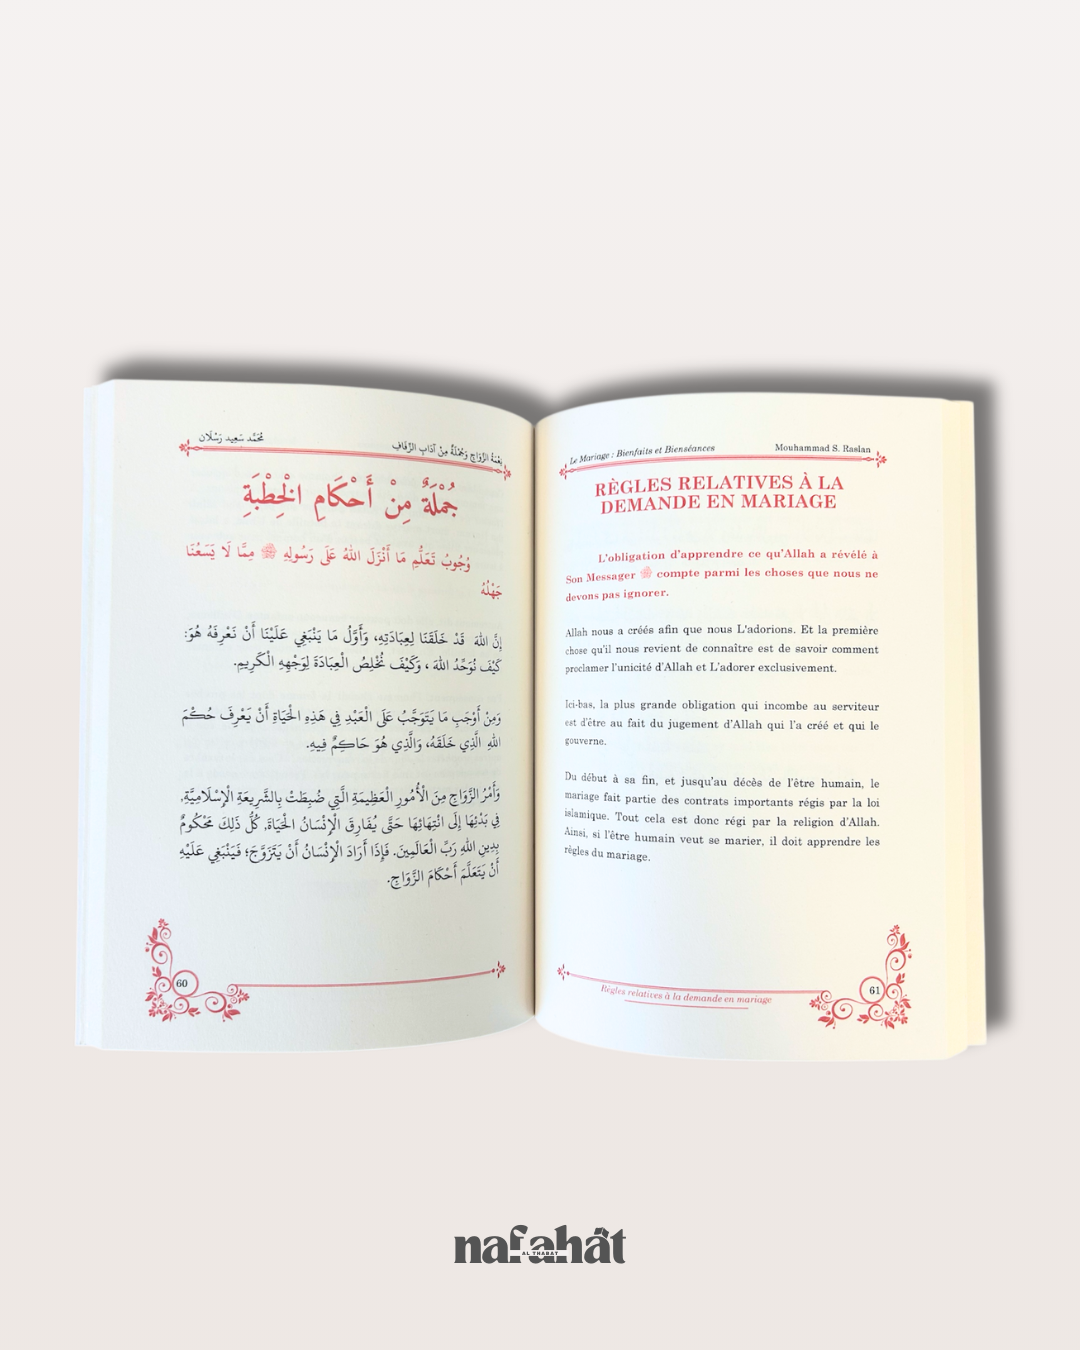 محَمَّد سَعِيد رَسْلَان
نِعْمَةُ الزَّوَاجِ وَجُمْلَةٌ مِنْ آدَابِ الزِّفَافِ
جُمْلَةٌ مِنْ أَحْكَامِ الْخِطْبَةِ
وُجُوبُ تَعَلُّمِ مَا أَنْزَلَ اللهُ عَلَى رَسُولِهِ ﷺ مِمَّا لَا يَسَعُنَا
جَهْلُهُ
إِنَّ اللهَ قَدْ خَلَقَنَا لِعِبَادَتِهِ، وَأَوَّلُ مَا يَنْبَغِي عَلَيْنَا أَنْ نَعْرِفَهُ هُوَ:
كَيْفَ نُوَحِّدُ اللهَ ، وَكَيْفَ نُخْلِصُ الْعِبَادَةَ لِوَجْهِهِ الْكَرِيمِ.
وَمِنْ أَوْجَبِ مَا يَتَوَجَّبُ عَلَى الْعَبْدِ فِي هَذِهِ الْحَيَاةِ أَنْ يَعْرِفَ حُكْمَ
اللهِ الَّذِي خَلَقَهُ، وَالَّذِي هُوَ حَاكِمٌ فِيهِ.
وَأَمْرُ الزَّوَاجِ مِنَ الْأُمُورِ الْعَظِيمَةِ الَّتِي ضُبِطَتْ بِالشَّرِيعَةِ الْإِسْلَامِيَّةِ،
فِي بَدْئِهَا إِلَى انْتِهَائِهَا حَتَّى يُفَارِقَ الْإِنْسَانُ الْحَيَاةَ، كُلُّ ذَلِكَ مَحْكُومٌ
بِدِينِ اللهِ رَبِّ الْعَالَمِينَ. فَإِذَا أَرَادَ الْإِنْسَانُ أَنْ يَتَزَوَّجَ؛ فَيَنْبَغِي عَلَيْهِ
أَنْ يَتَعَلَّمَ أَحْكَامَ الزَّوَاجِ.
60
Le Mariage : Bienfaits et Bienséances
Mouhammad S. Raslan
RÈGLES RELATIVES À LA
DEMANDE EN MARIAGE
L'obligation d'apprendre ce qu'Allah a révélé à
Son Messager ﷺ compte parmi les choses que nous ne
devons pas ignorer.
Allah nous a créés afin que nous L'adorions. Et la première
chose qu'il nous revient de connaître est de savoir comment
proclamer l'unicité d'Allah et L'adorer exclusivement.
Ici-bas, la plus grande obligation qui incombe au serviteur
est d'être au fait du jugement d'Allah qui l'a créé et qui le
gouverne.
Du début à sa fin, et jusqu'au décès de l'être humain, le
mariage fait partie des contrats importants régis par la loi
islamique. Tout cela est donc régi par la religion d'Allah.
Ainsi, si l'être humain veut se marier, il doit apprendre les
règles du mariage.
Règles relatives à la demande en mariage
61
nafahât
AL THABAT